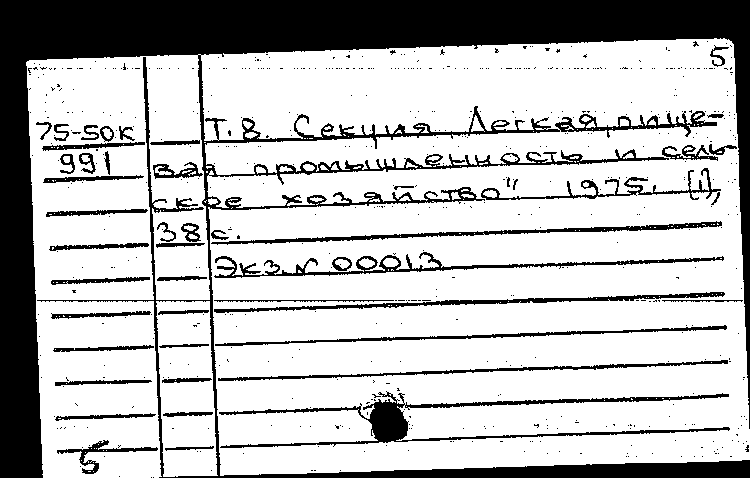 5
75-50к Т. 8. Секция „Легкая, пище-
991 вая промышленность и сель-
ское хозяйство" 1975. [1],
38 с.
Экз. N 00013
5